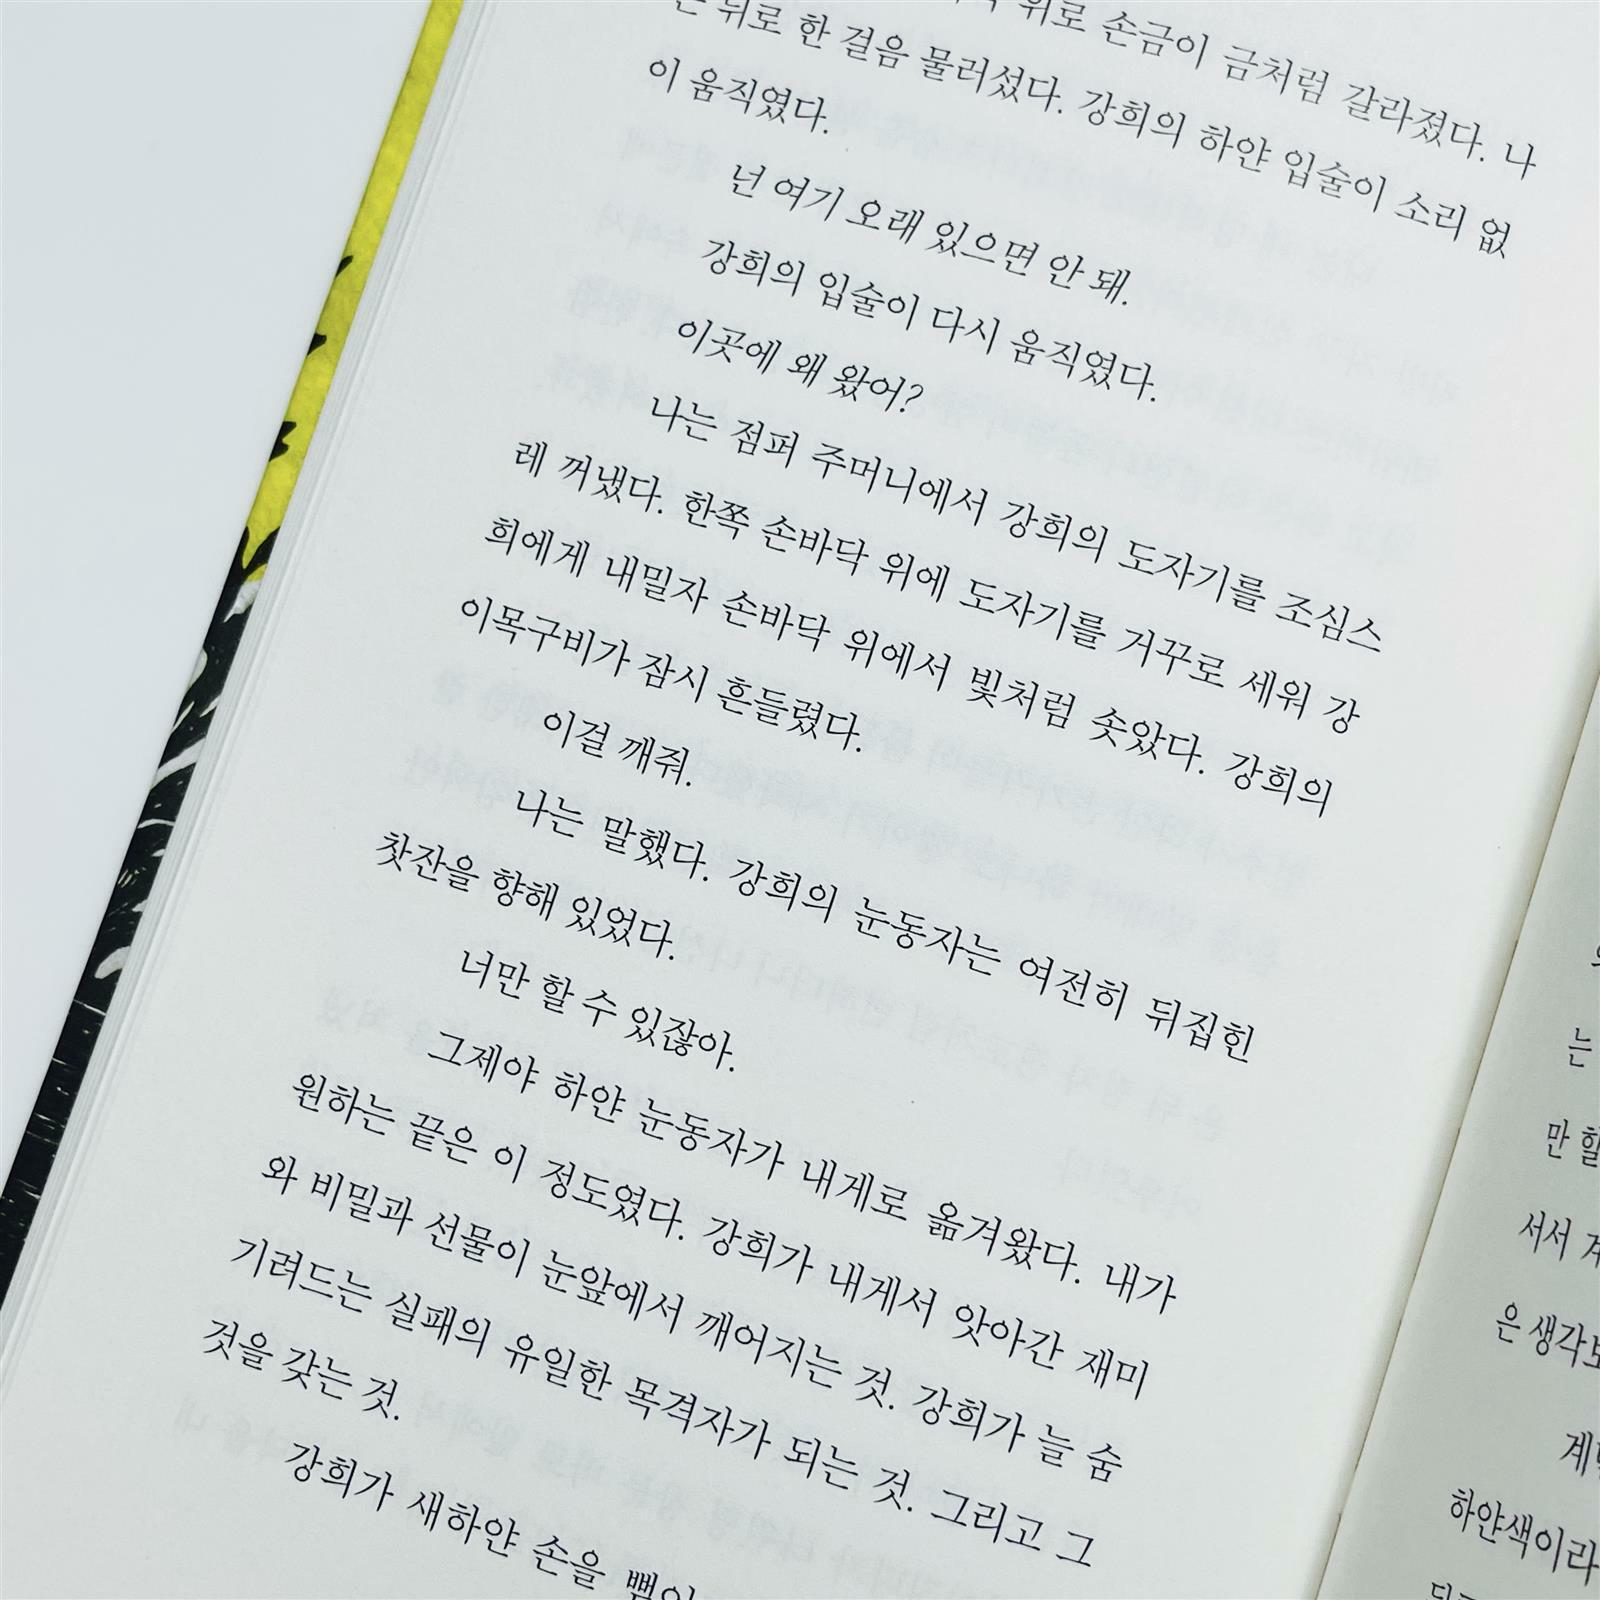 위로 손금이 금처럼 갈라졌다. 나
는 뒤로 한 걸음 물러섰다. 강희의 하얀 입술이 소리 없
이 움직였다.
넌 여기 오래 있으면 안 돼.
강희의 입술이 다시 움직였다.
이곳에 왜 왔어?
나는 점퍼 주머니에서 강희의 도자기를 조심스
레 꺼냈다. 한쪽 손바닥 위에 도자기를 거꾸로 세워 강
희에게 내밀자 손바닥 위에서 빛처럼 솟았다. 강희의
이목구비가 잠시 흔들렸다.
이걸 깨줘.
나는 말했다. 강희의 눈동자는 여전히 뒤집힌
찻잔을 향해 있었다.
너만 할 수 있잖아.
그제야 하얀 눈동자가 내게로 옮겨왔다. 내가
원하는 끝은 이 정도였다. 강희가 내게서 앗아간 재미
와 비밀과 선물이 눈앞에서 깨어지는 것. 강희가 늘 숨
기려드는 실패의 유일한 목격자가 되는 것. 그리고 그
것을 갖는 것.
강희가 새하얀 손을
는
만 할
서서
은 생각보
하얀색이라